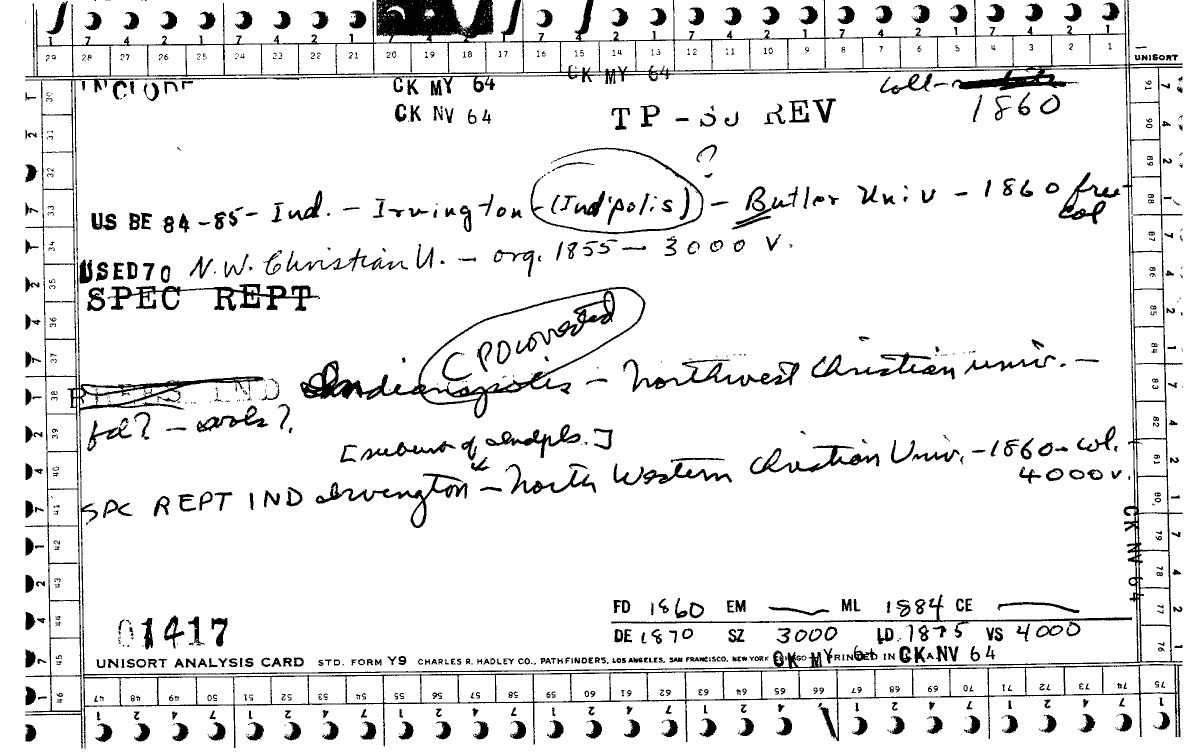 29 28 27 26 25 24 23 22 21 20 19 18 17 16 15 14 13 12 11 10 9 8 7 6 5 4 3 2 1
UNISORT
INCLUDE
CK MY 64
CK MY 64
Coll-
CK NV 64
TP - SU REV
1860
?
US BE 84-85- Ind. - Irvington - (Ind'polis) - Butler Univ - 1860 free col
USED70 N.W. Christian U. - org. 1855 - 3000 v.
SPEC REPT
C PD covered
IND Indianapolis - Northwest Christian univ. -
fd? - vols?
[suburb of Indpls.]
SPC REPT IND Irvington - North Western Christian Univ. - 1860 - col.
4000 v.
CK NV 64
FD 1860 EM ML 1884 CE
DE 1870 SZ 3000 LD. 1875 VS 4000
01417
UNISORT ANALYSIS CARD STD. FORM Y9 CHARLES R. HADLEY CO., PATHFINDERS, LOS ANGELES, SAN FRANCISCO, NEW YORK PRINTED IN
CK MY 64 CK NV 64
47 48 49 50 51 52 53 54 55 56 57 58 59 60 61 62 63 64 65 66 67 68 69 70 71 72 73 74 75